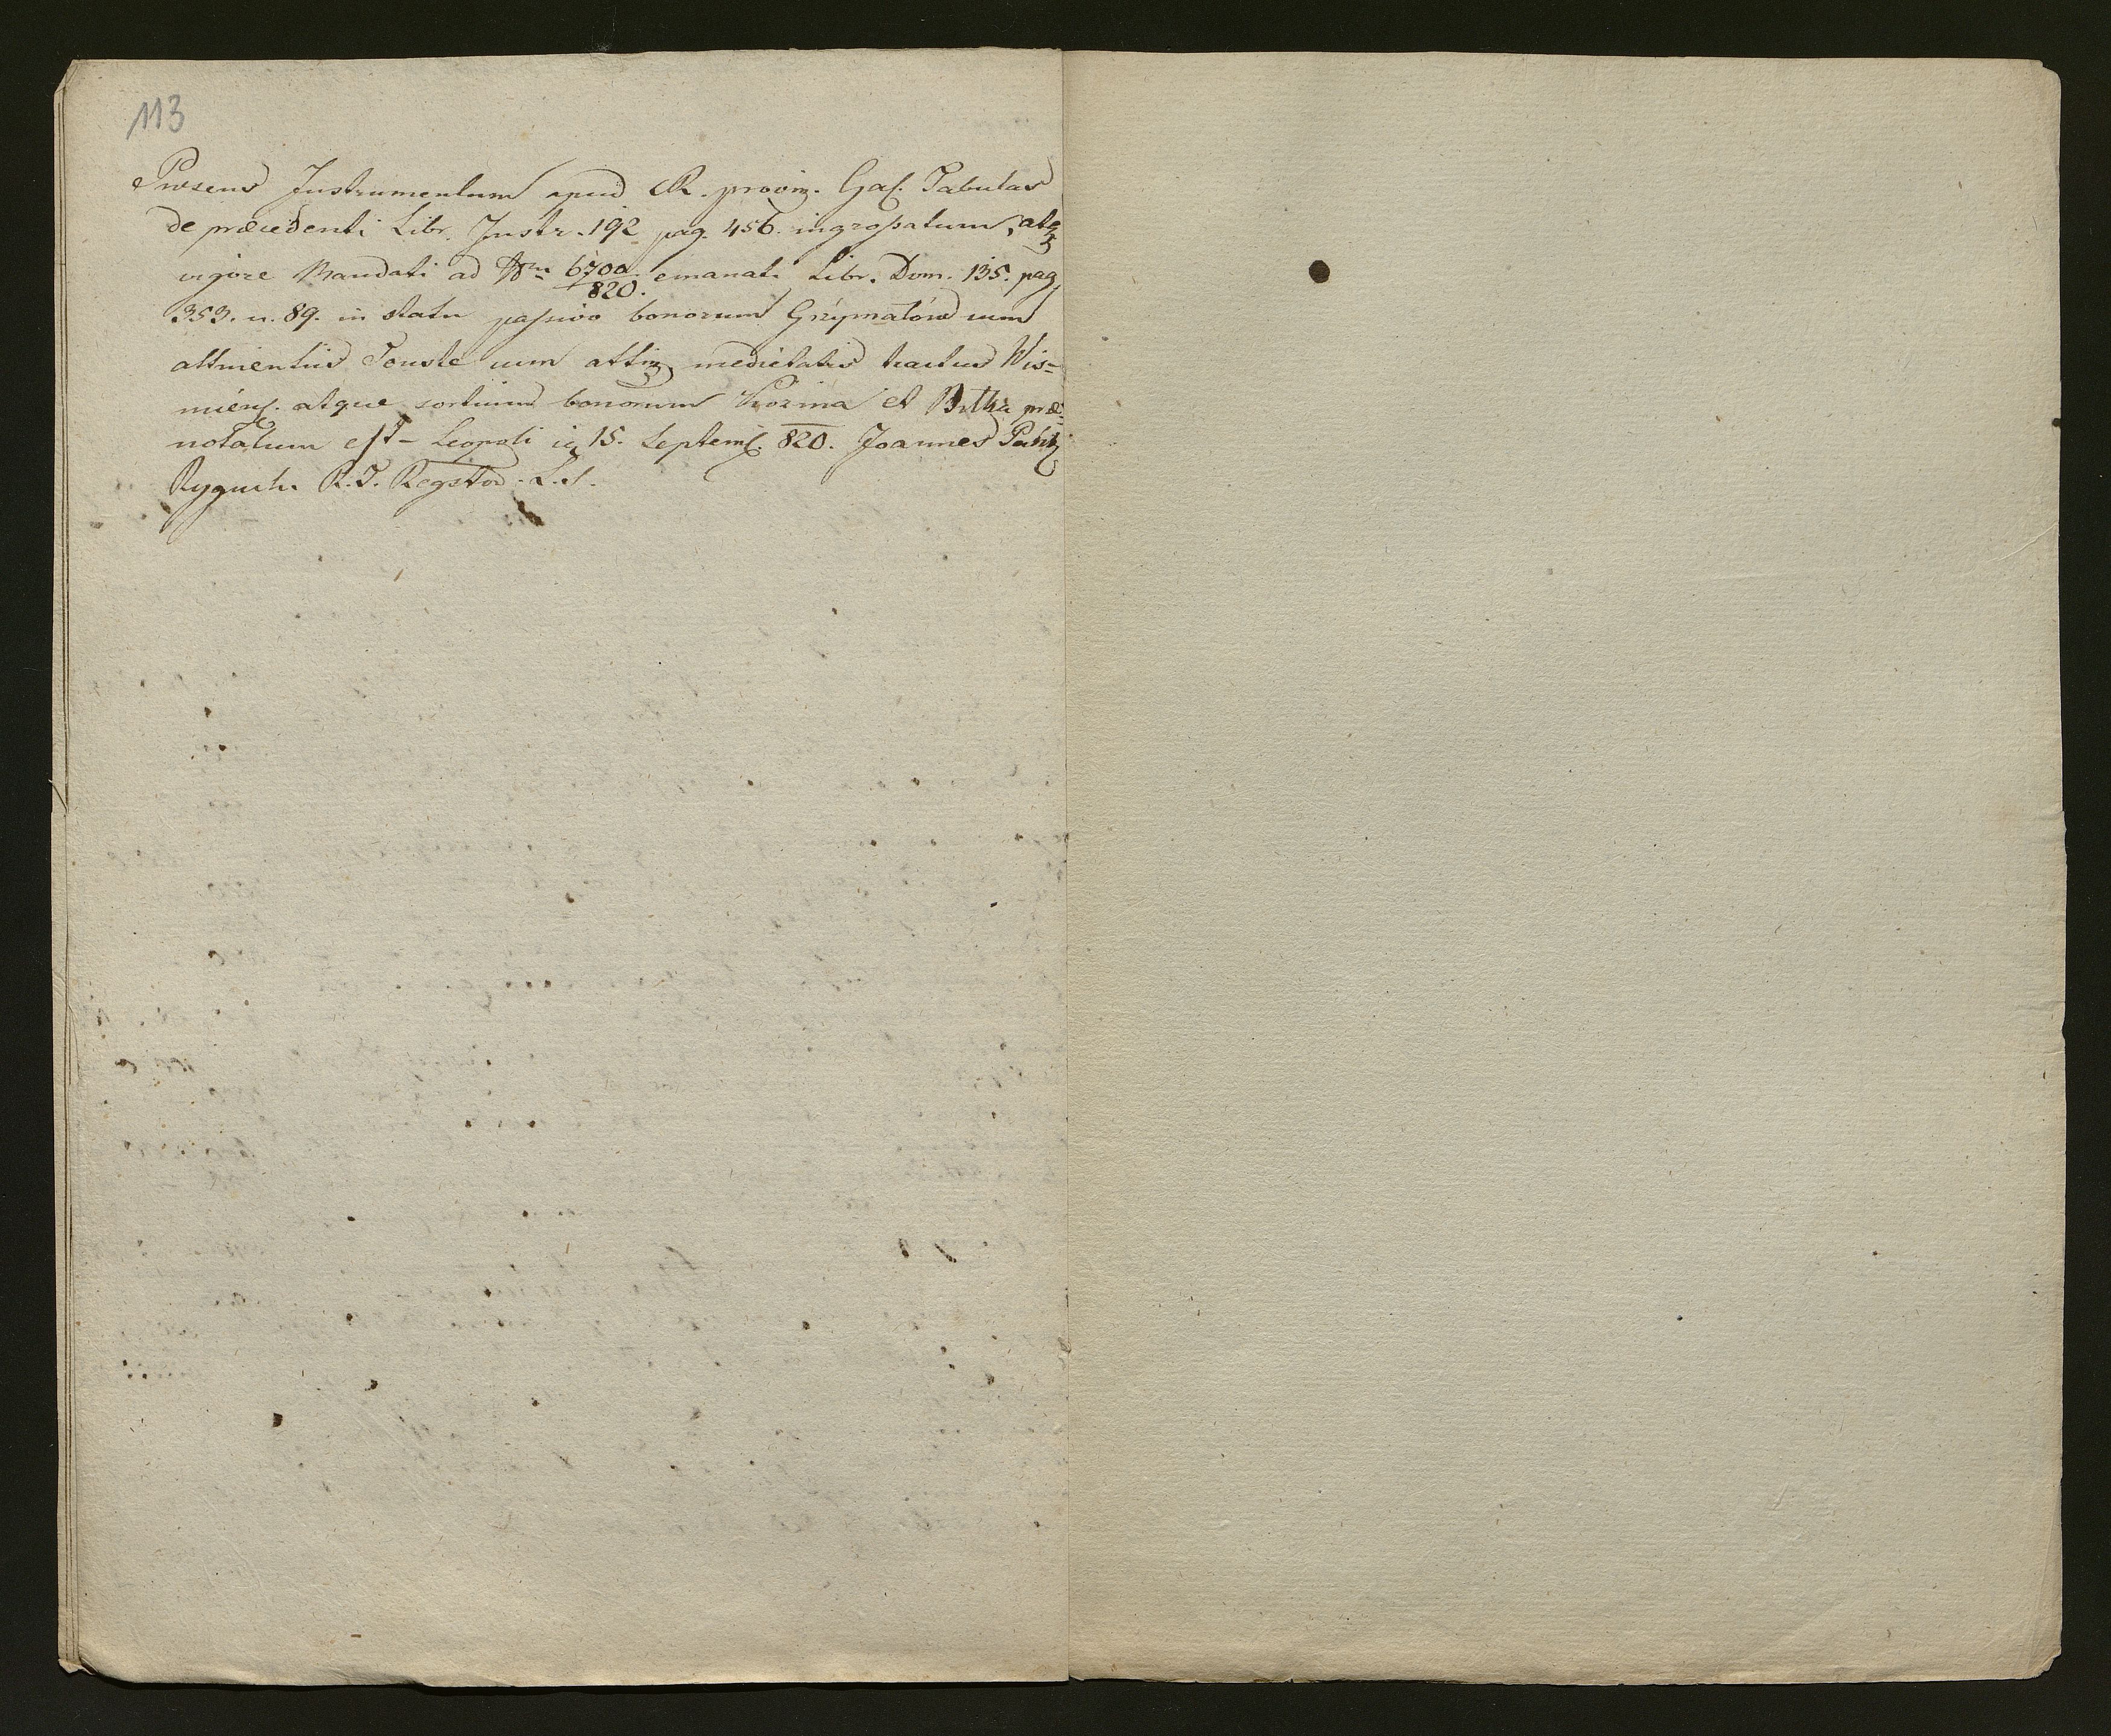 113
Præsens Instrumentum apud R. provin. Gal. Tabulas
de præcedenti Libr. Instr. 192 pag. 456. ingrossatum, atq
vigore Mandati ad Nrm 6700/820. emanati Libr. Dom. 135. pag.
353. n. 89. in statu passivo bonorum Grzymałów cum
attinentiis Touste cum attin. medietatis tractus Wis=
niens. atque sortium bonorum Kozina et Bitka præ=
notatum est - Leopoli 15. Septemb. 820. Joannes
R. T. Regstor. L.S.